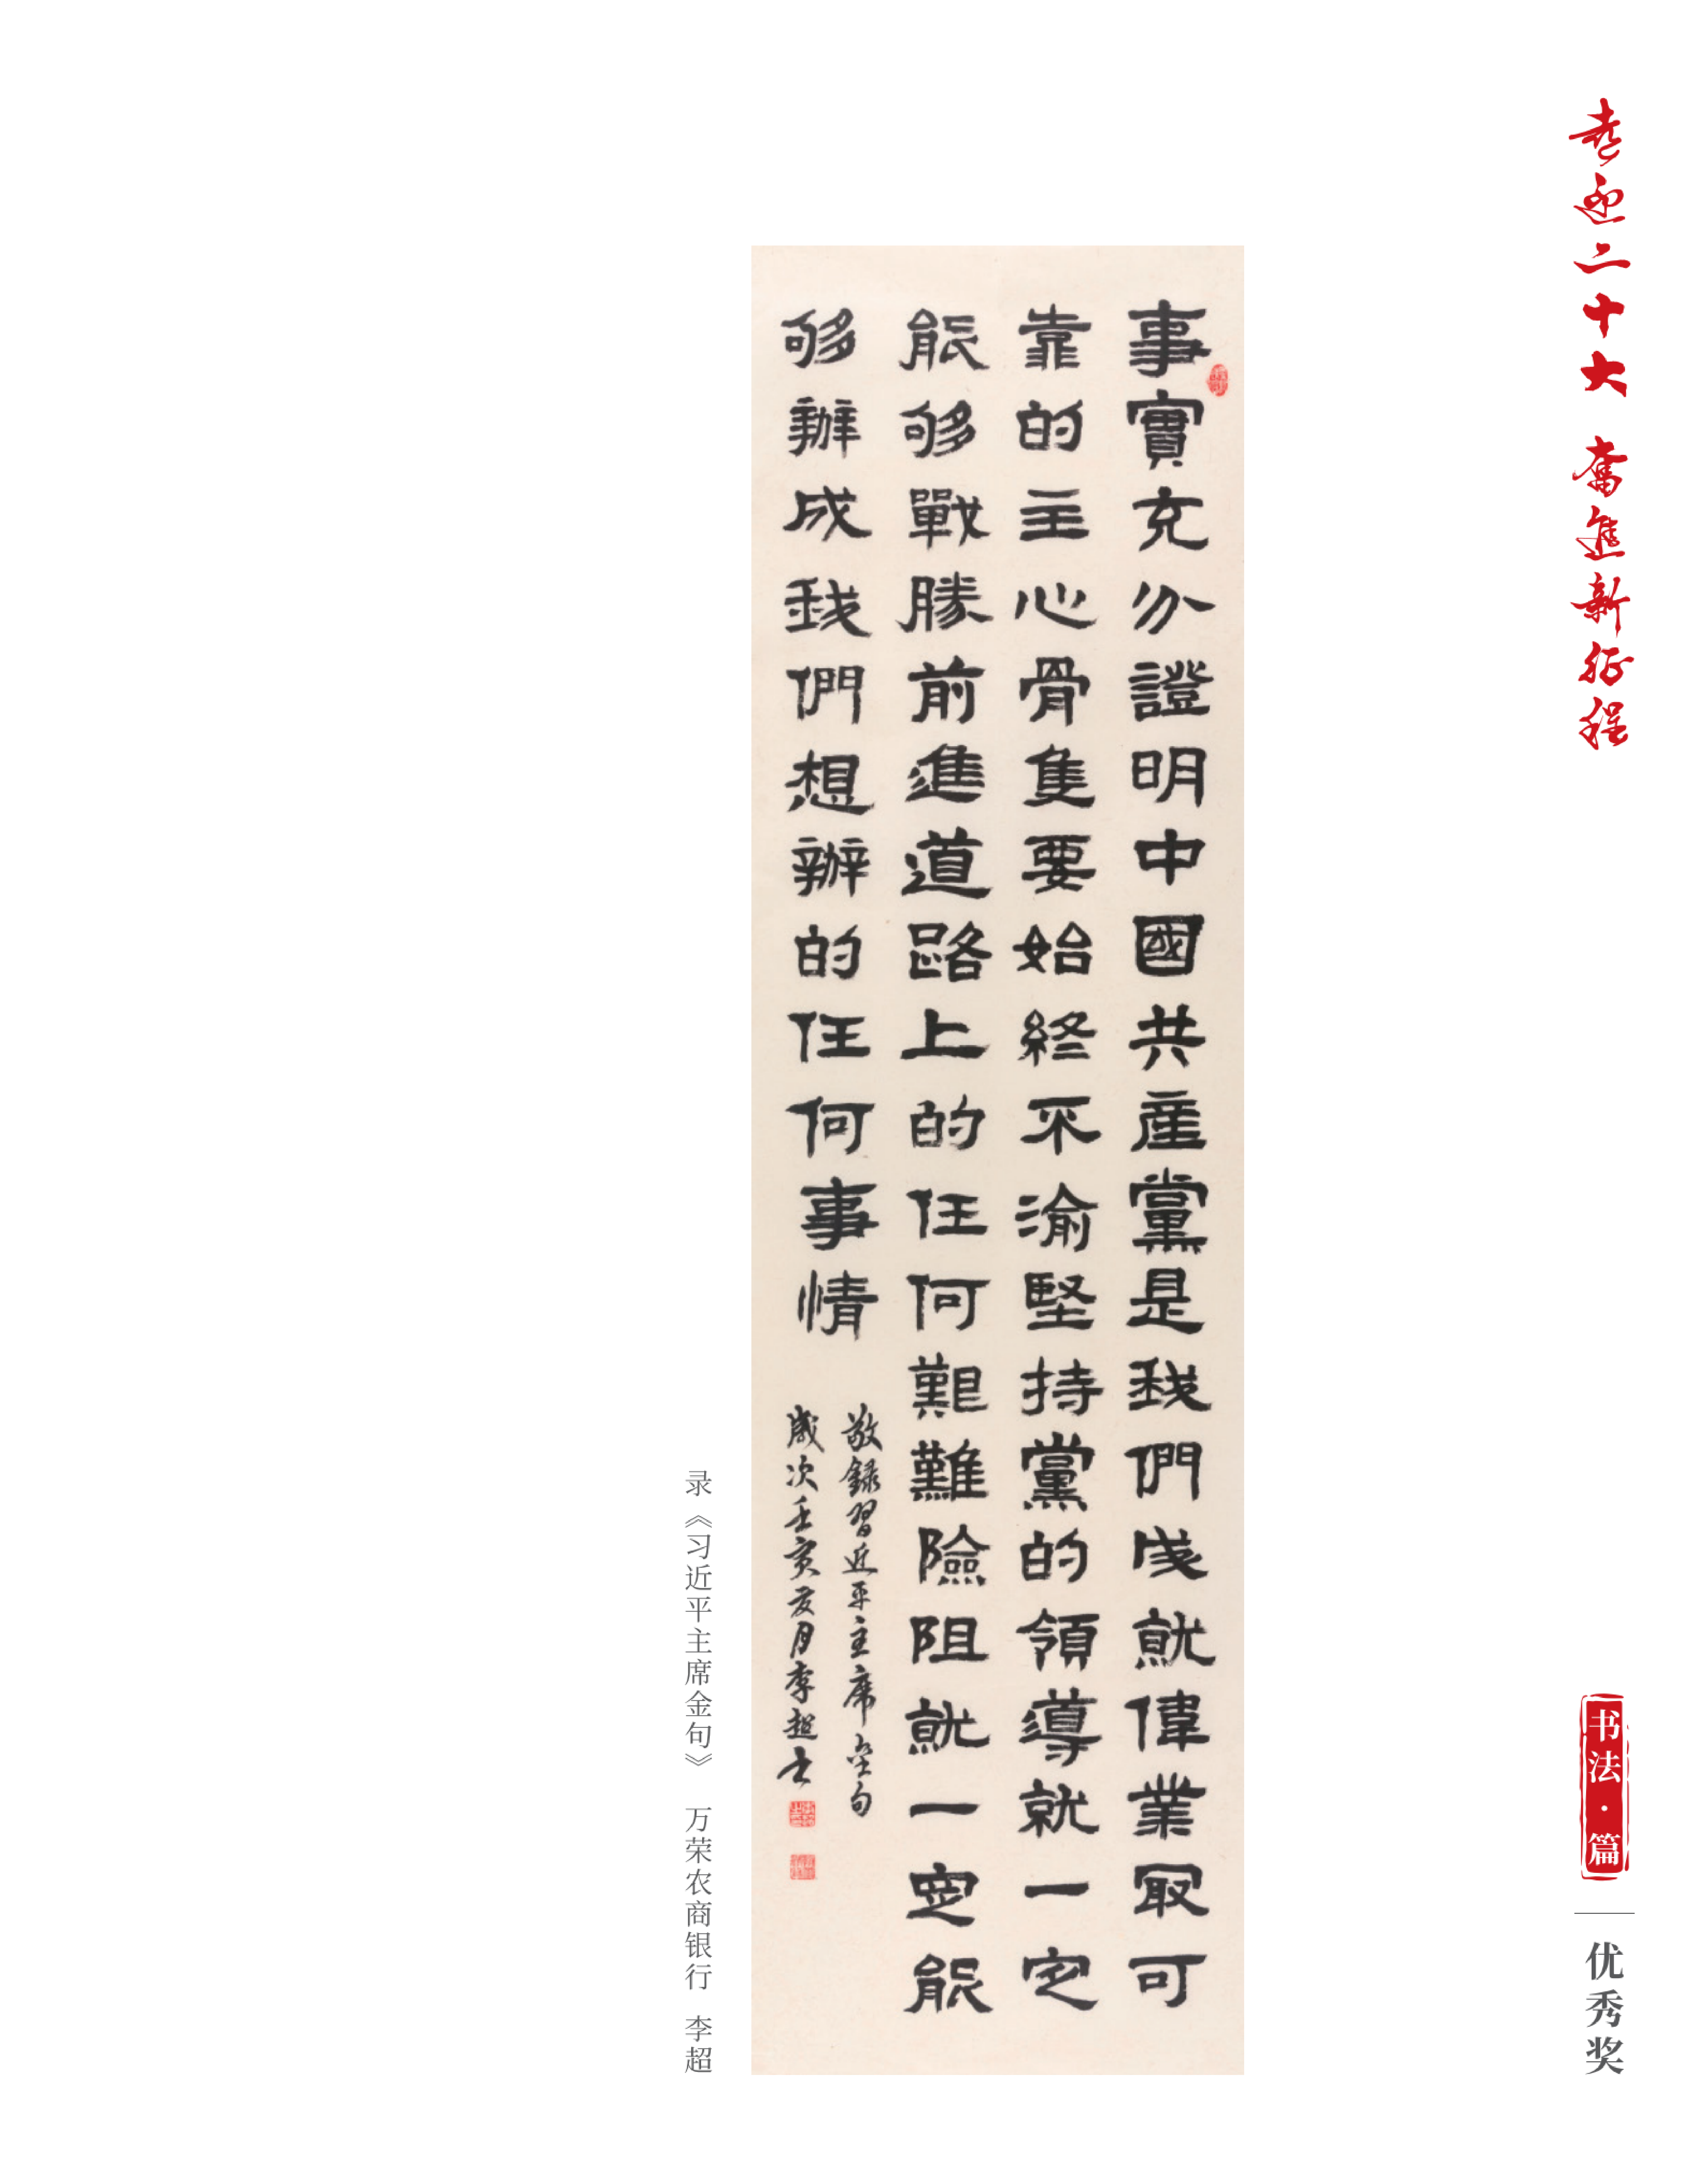 喜迎二十大 奋進新征程
书法·篇
优秀奖
事實充分證明中國共產黨是我們成就偉業最可
靠的主心骨隻要始終不渝堅持黨的領導就一定
能够戰勝前進道路上的任何艱難險阻就一定能
够辦成我們想辦的任何事情
敬錄習近平主席金句
歲次壬寅友月李超书
录《习近平主席金句》 万荣农商银行 李超